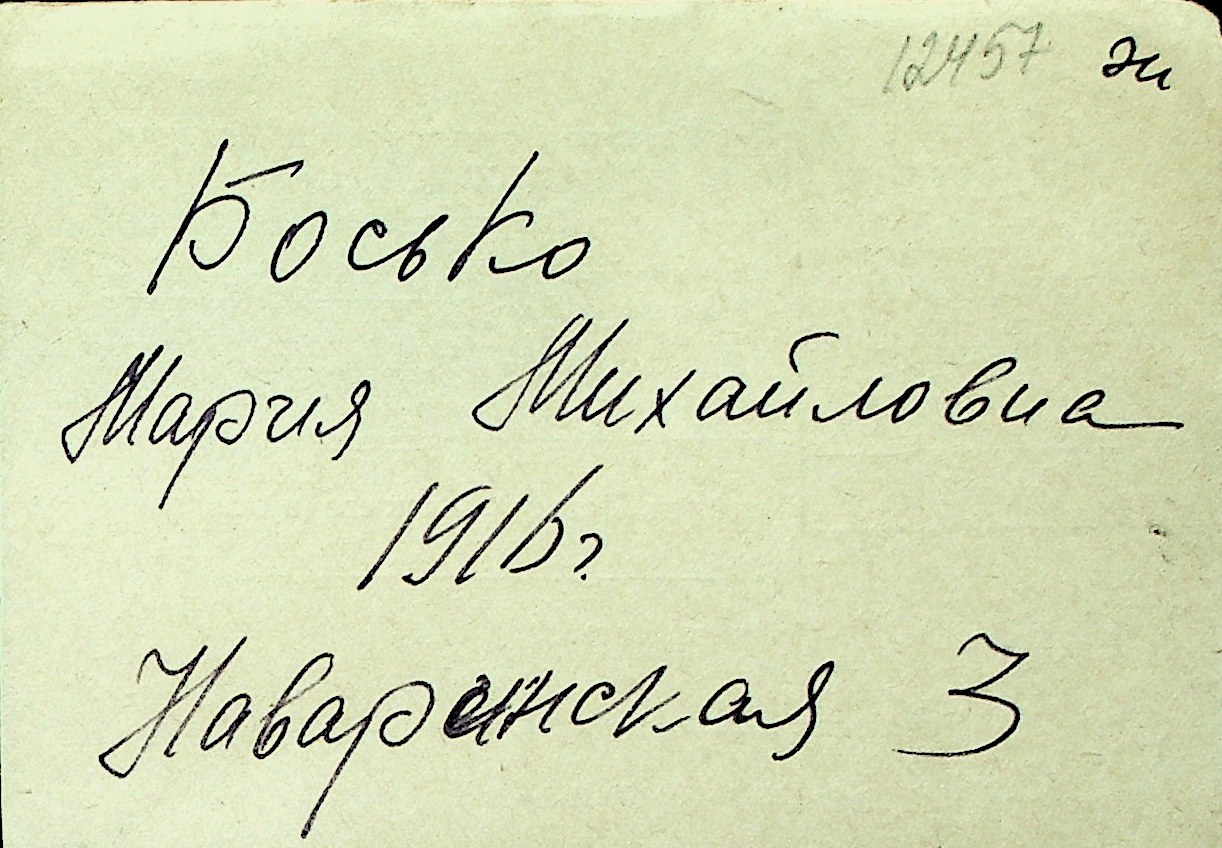 12457 жи
Босько
Мария Михайловна
1916г
Наваринская 3